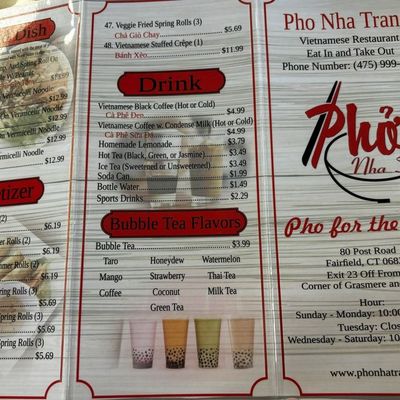 Dish
$12.99
Noodle
$12.99
Vermicelli Noodle
$12.99
Vermicelli Noodle
$12.99
rmicelli Noodle
$12.99
etizer
(2)
$6.19
mer Rolls (2)
$6.19
Rolls (2)
$6.19
mmer Rolls (2)
$6.19
Spring Rolls (3)
$5.69
pring Rolls (3)
$5.69
Spring Rolls (3)
$5.69
47. Veggie Fried Spring Rolls (3)
Chả Giò Chay $5.69
48. Vietnamese Stuffed Crêpe (1)
Bánh Xèo $11.99
Drink
Vietnamese Black Coffee (Hot or Cold)
Cà Phê Đen $4.99
Vietnamese Coffee w. Condense Milk (Hot or Cold)
Cà Phê Sữa Đá $4.99
Homemade Lemonade $3.79
Hot Tea (Black, Green, or Jasmine) $3.49
Ice Tea (Sweetened or Unsweetened) $3.49
Soda Can $1.99
Bottle Water $1.49
Sports Drinks $2.29
Bubble Tea Flavors
Bubble Tea $3.99
Taro Honeydew Watermelon
Mango Strawberry Thai Tea
Coffee Coconut Milk Tea
Green Tea
Pho Nha Tran
Vietnamese Restaurant
Eat In and Take Out
Phone Number: (475) 999-
Phở
Nha
Pho for the
80 Post Road
Fairfield, CT 068
Exit 23 Off From
Corner of Grasmere an
Hour:
Sunday - Monday: 10:00
Tuesday: Clos
Wednesday - Saturday: 10:
www.phonhatra